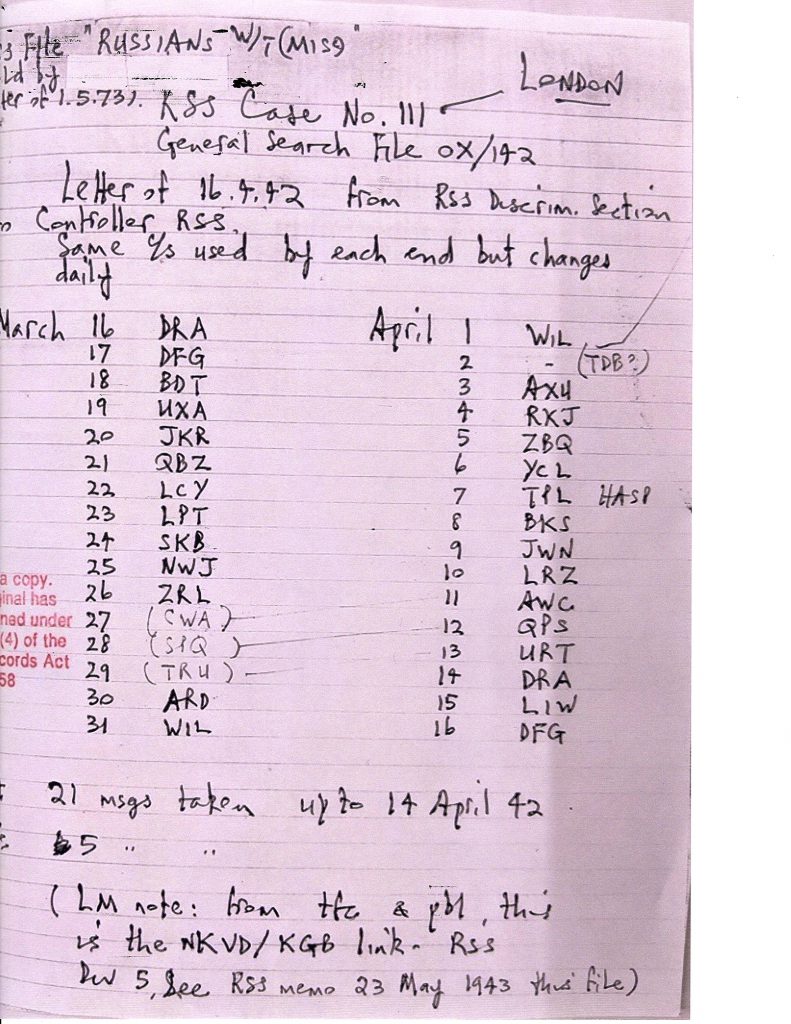 File "RUSSIANS W/T (MISC"
by
of 1.5.73). RSS Case No. 111 LONDON
General Search File OX/142
Letter of 16.4.42 from RSS Discrim. Section
Controller RSS.
Same C/s used by each end but changes
daily
March 16 DRA April 1 WIL
17 DFG 2 - (TDB?)
18 BDT 3 AXU
19 UXA 4 RXJ
20 JKR 5 ZBQ
21 QBZ 6 YCL
22 LCY 7 TPL HASP
23 LPT 8 BKS
24 SKB 9 JWN
25 NWJ 10 LRZ
26 ZRL 11 AWC
27 (CWA) 12 QPS
28 (SPQ) 13 URT
29 (TRU) 14 DRA
30 ARD 15 LIW
31 WIL 16 DFG
a copy.
inal has
ned under
(4) of the
cords Act
58
21 msgs taken up to 14 April 42
5 " "
(LM note: from tfc & pbl, this
is the NKVD/KGB link - RSS
5, See RSS memo 23 May 1943 this file)